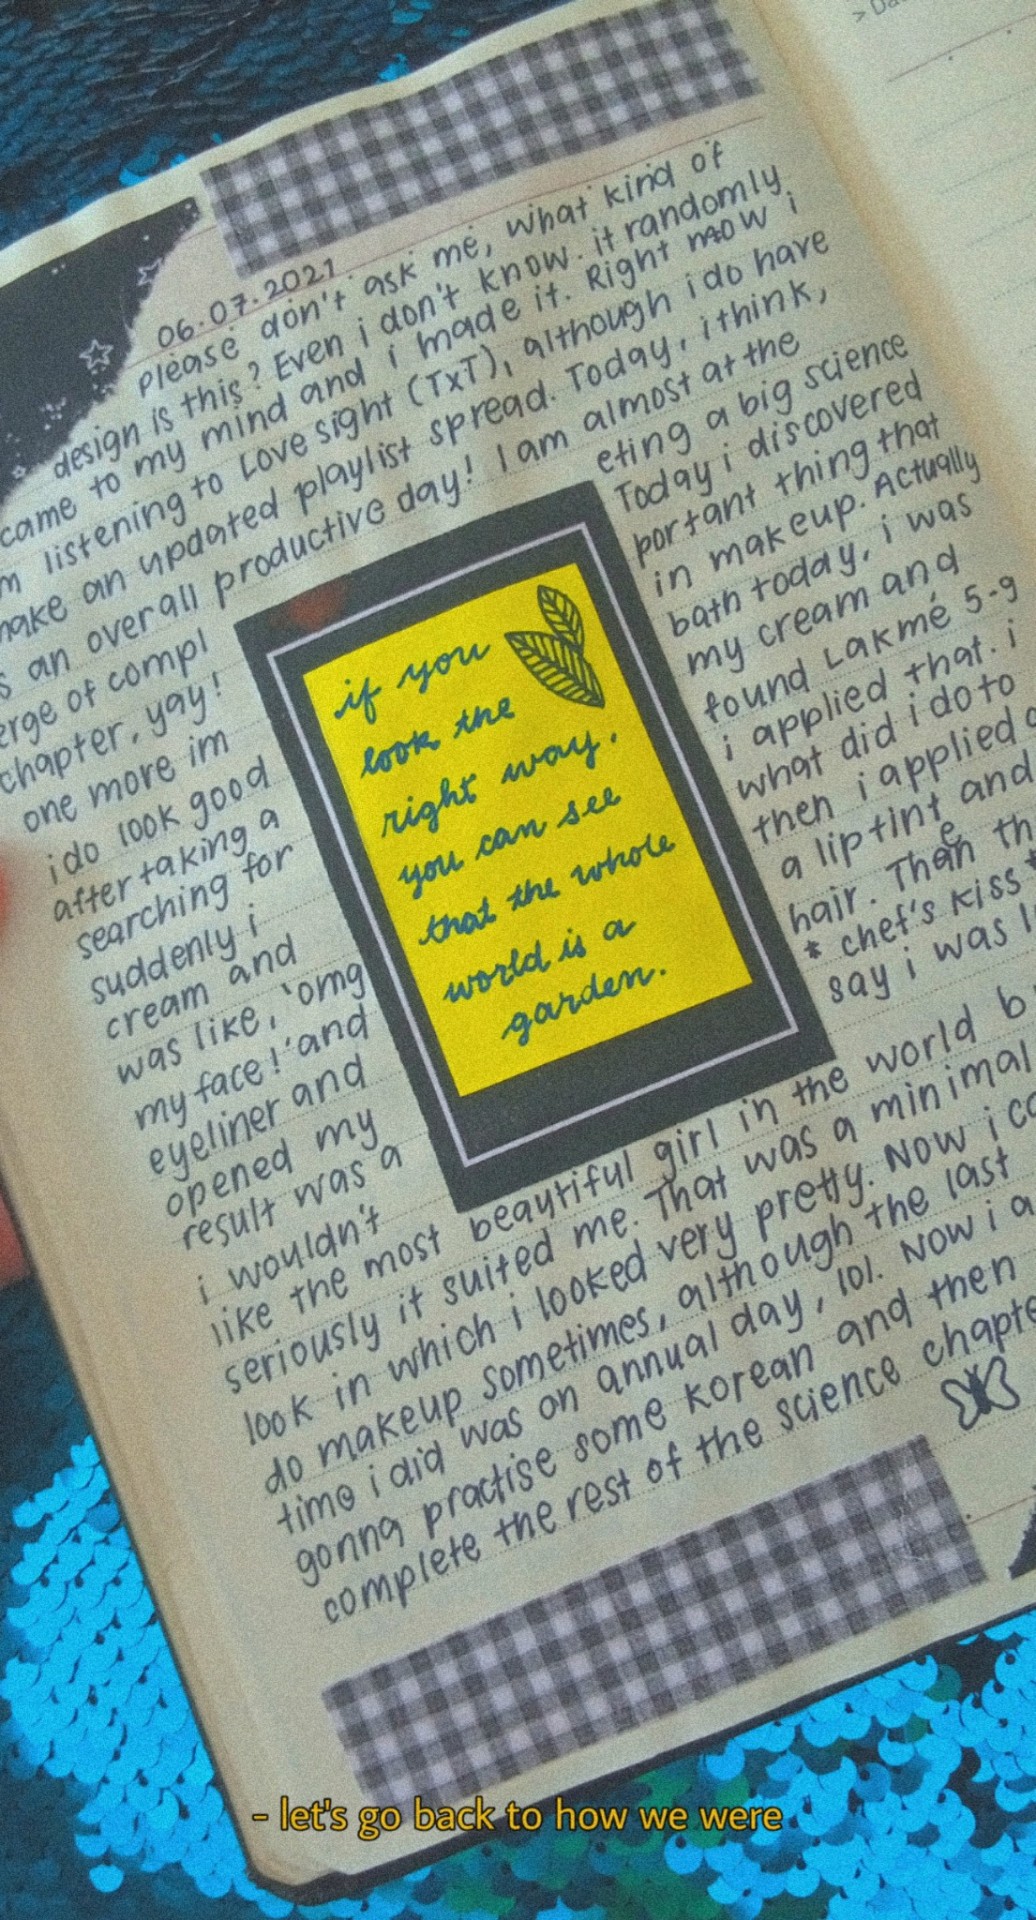 06.07.2021
please don't ask me, what kind of
design is this? Even i don't know. it randomly
came to my mind and i made it. Right now i
m listening to Love sight (TxT), although i do have
make an updated playlist spread. Today, i think,
s an overall productive day! I am almost at the
erge of compl eting a big science
chapter, yay! Today i discovered
one more im portant thing that
i do look good in makeup. Actually
after taking a bath today, i was
searching for my cream and
suddenly i found Lakmé 5-g
cream and i applied that. i
was like, 'omg what did i do to
my face!' and then i applied
eyeliner and a liptint and
opened my hair. Then th
result was a * chef's kiss *
i wouldn't say i was l
like the most beautiful girl in the world b
seriously it suited me. That was a minimal
look in which i looked very pretty. Now i ca
do makeup sometimes, although the last
time i did was on annual day, lol. Now i a
gonna practise some korean and then
complete the rest of the science chapte
if you
look the
right way,
you can see
that the whole
world is a
garden.
- let's go back to how we were